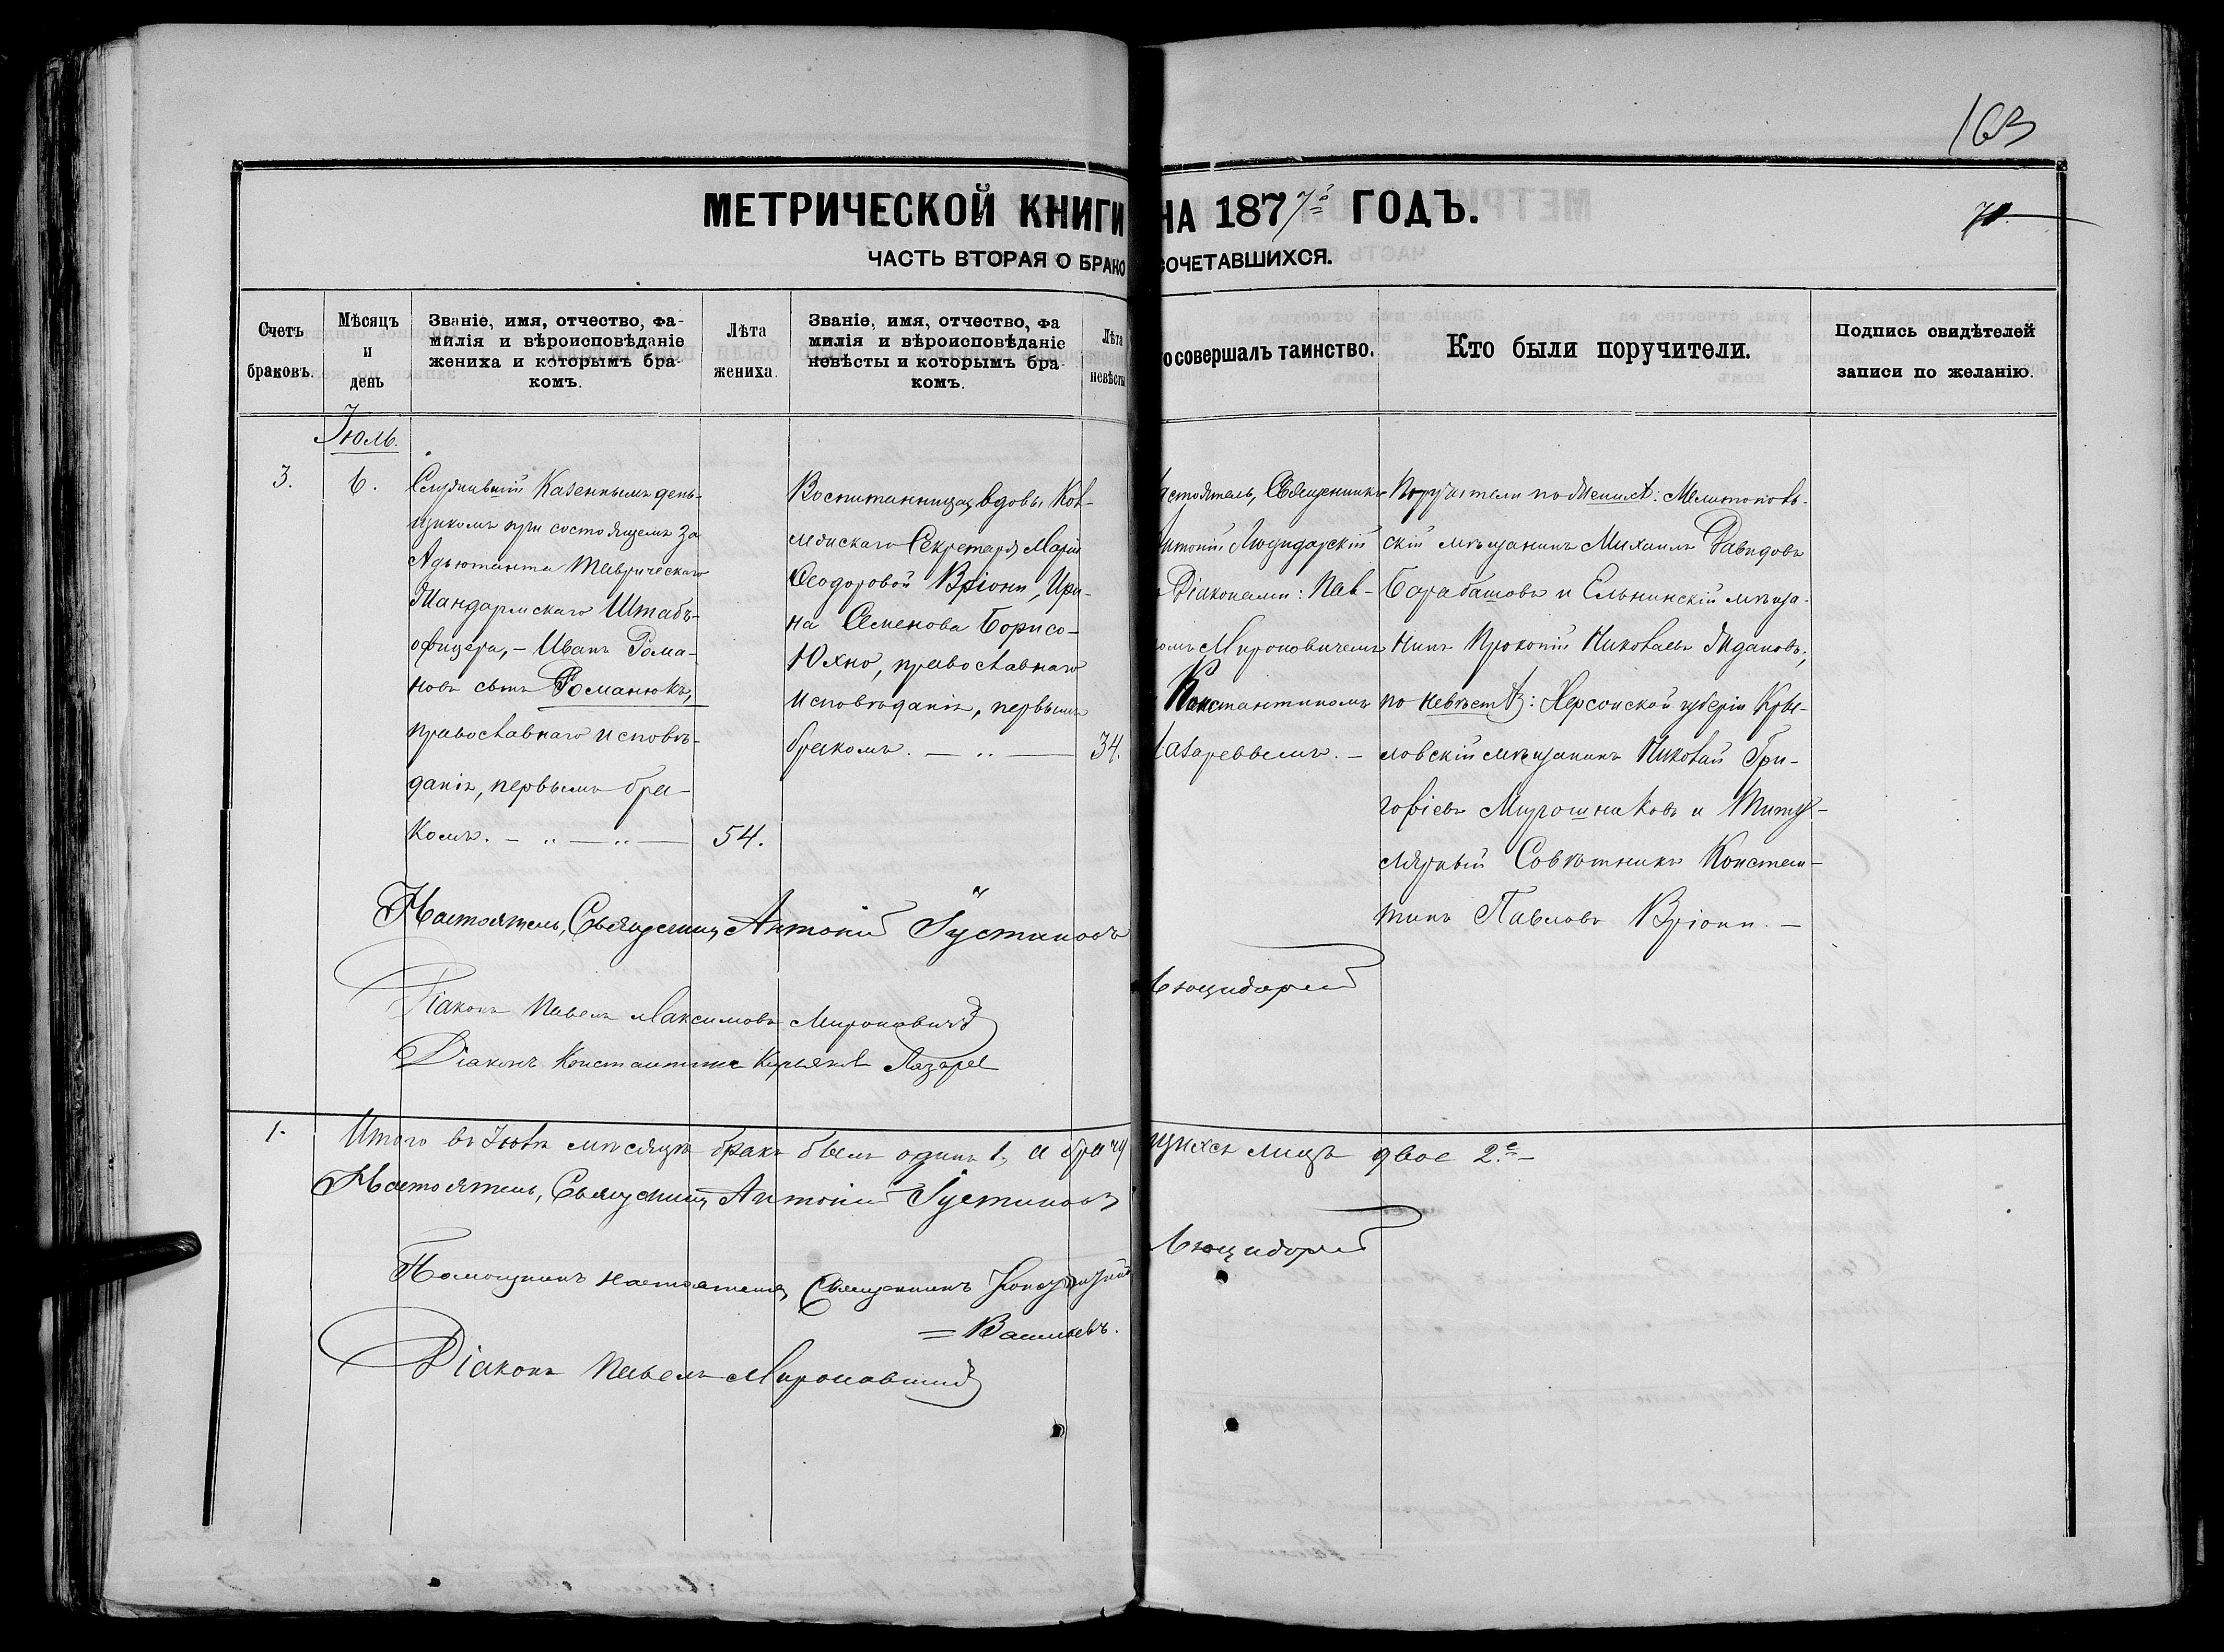 163
МЕТРИЧЕСКОЙ КНИГИ НА 1877й ГОДЪ.
71.
ЧАСТЬ ВТОРАЯ О БРАКОСОЧЕТАВШИХСЯ.
Счетъ браковъ.
Мѣсяцъ и день
Званіе, имя, отчество, фа-
милія и вѣроисповѣданіе
жениха и которымъ бра-
комъ.
Лѣта жениха.
Званіе, имя, отчество, фа
милія и вѣроисповѣданіе
невѣсты и которымъ бра-
комъ.
Лѣта невѣсты
о совершалъ таинство.
Кто были поручители.
Подпись свидѣтелей
записи по желанію.
Іюль.
3.
6.
Служившій Казеннымъ день-
щикомъ при состоящемъ за
Адьютанта Таврическаго
Жандармскаго Штабъ-
офицера, – Иванъ Рома-
новъ сынъ Романюкъ,
православнаго исповѣ-
данія, первымъ бра-
комъ. – „ – „ –
54.
Воспитанница, вдовы Кол-
лежскаго Секретаря Маріи
Ѳеодоровой Вріони, Ири-
на Семенова Борисо-
Юхно, православнаго
исповѣданія, первымъ
бракомъ. – „ –
34.
астоятель, Священникъ
нтоній Люцидарскій
Діаконами: Пав-
ломъ Мироновичемъ
Константиномъ
Лазаревымъ. –
Поручители по жениху: Мелитополь-
скій мѣщанинъ Михаилъ Давидовъ
Барабашовъ и Ельнинскій мѣща-
нинъ Прокопій Николаевъ Ждановъ;
по невѣстѣ: Херсонской губерніи Кры-
ловскій мѣщанинъ Николай Гри-
горіевъ Мирошниковъ и Титу-
лярный Совѣтникъ Констан-
тинъ Павловъ Вріони. –
Настоятель, Священникъ Антоній Іустиновъ Люцидарскій
Діаконъ Павелъ Максимовъ Мироновичъ
Діаконъ Константинъ Лазаревъ
1.
Итого въ Іюлѣ мѣсяцѣ бракъ былъ одинъ 1, а брачущихся лицъ двое 2.е –
Настоятель, Священникъ Антоній Іустиновъ Люцидарскій
Помощникъ настоятеля, Священникъ
= Васильевъ.
Діаконъ Павелъ Мироновичъ